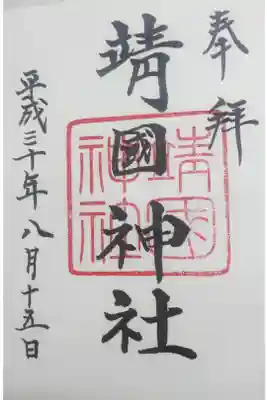 奉拝
靖國神社
靖國神社
平成三十年八月十五日